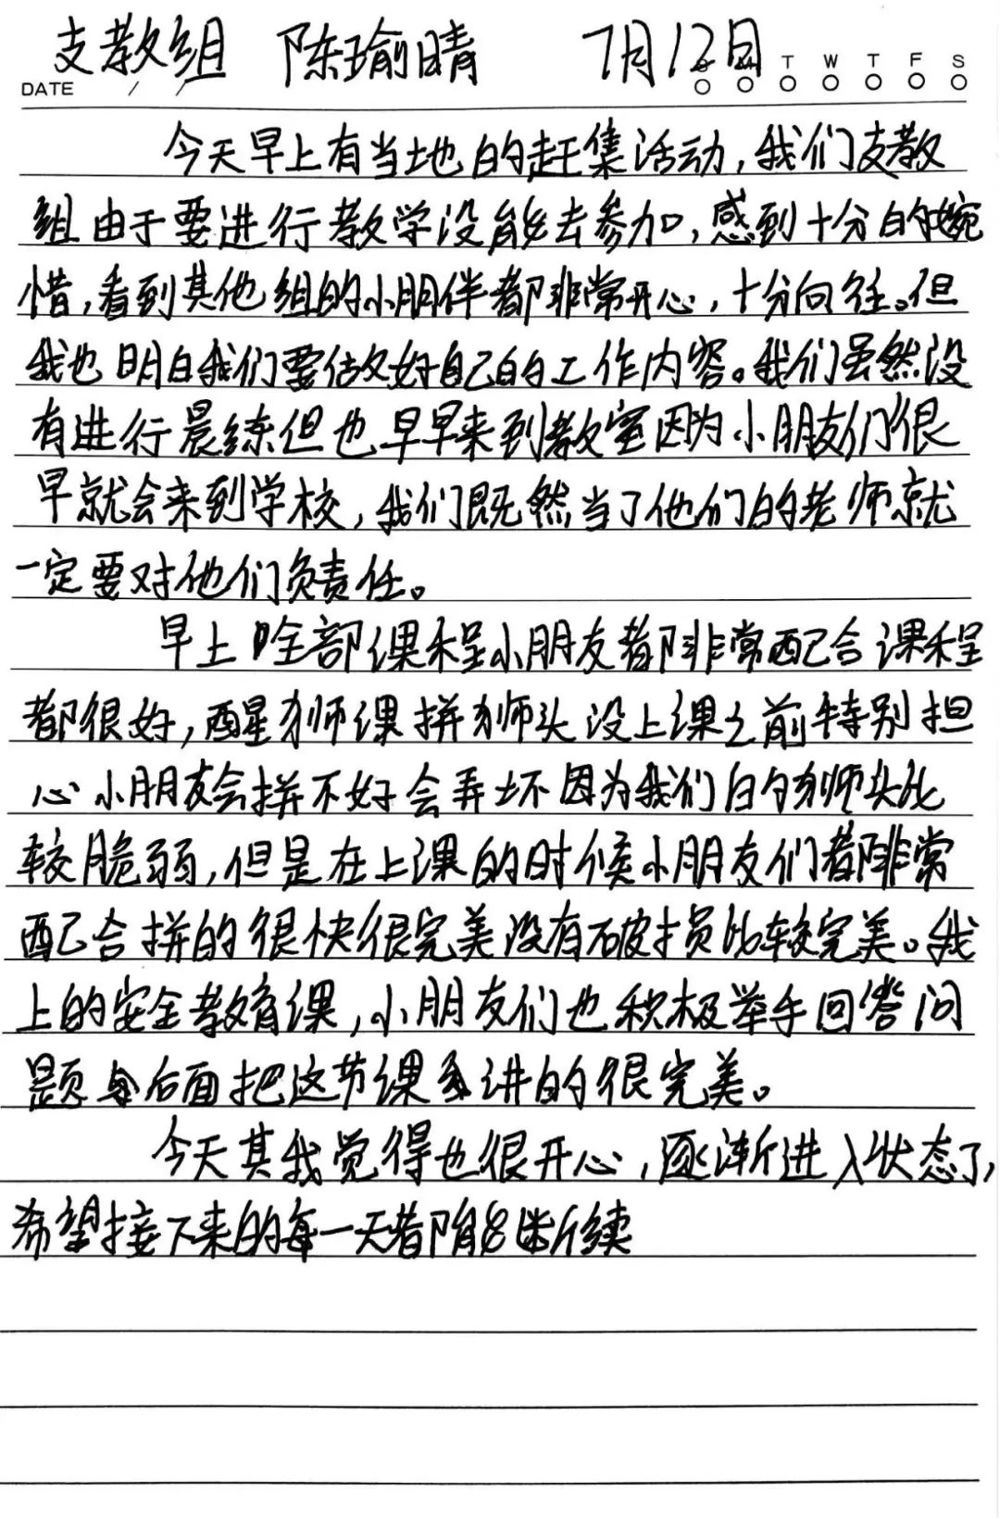 支教组 陈瑜晴 7月12日
DATE / / T W T F S
今天早上有当地的赶集活动,我们支教
组由于要进行教学没能去参加,感到十分的惋
惜,看到其他组的小朋伴都非常开心,十分向往。但
我也明白我们要做好自己的工作内容。我们虽然没
有进行晨练但也早早来到教室因为小朋友们很
早就会来到学校,我们既然当了他们的老师就
一定要对他们负责任。
早上全部课程小朋友都非常配合课程
都很好,醒狮课拼狮头没上课之前特别担
心小朋友会拼不好会弄坏因为我们的狮头比
较脆弱,但是在上课的时候小朋友们都非常
配合拼的很快很完美没有破损比较完美。我
上的安全教育课,小朋友们也积极举手回答问
题 后面把这节课 讲的很完美。
今天其我觉得也很开心,逐渐进入状态了,
希望接下来的每一天都能 续